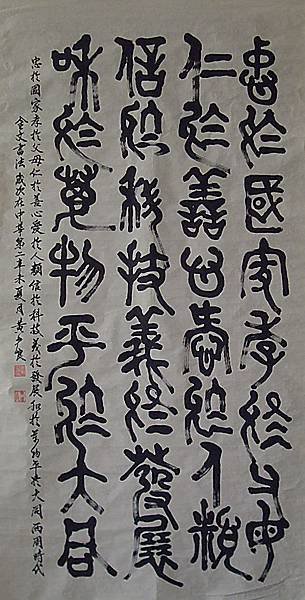 忠於國家孝於父母
仁於善心愛於人類
信於科技義於發展
和於萬物平於大同
忠於國家孝於父母仁於善心愛於人類信於科技義於發展和於萬物平於大同兩周時代
金文書法歲次在中華第二辛未夏月黃